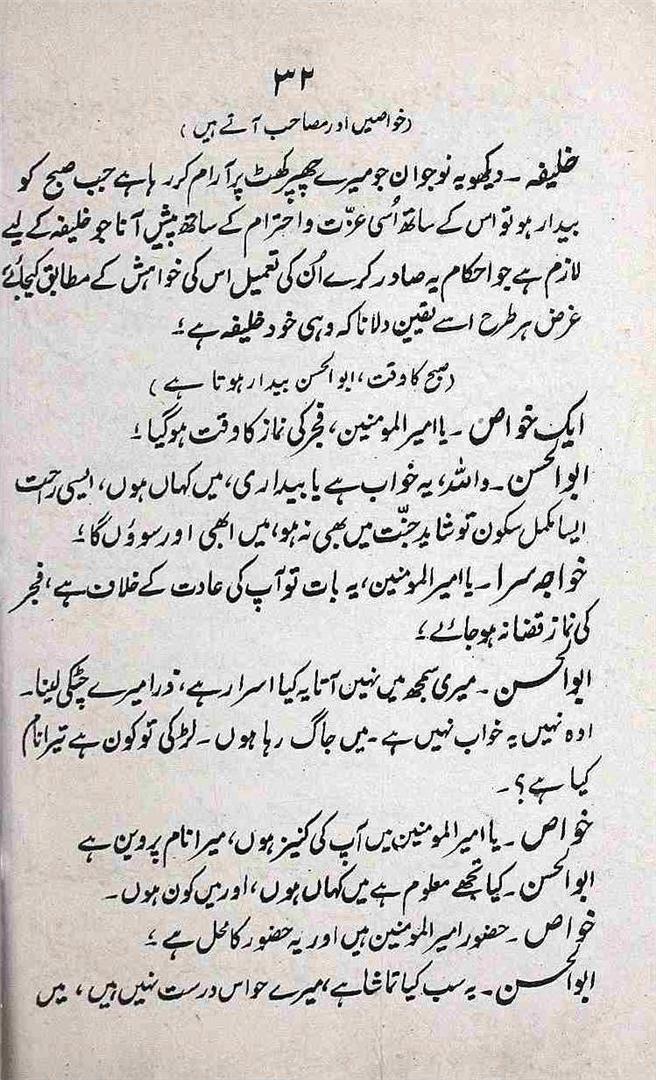 ۳۲
(خواصیں اور مصاحب آتے ہیں)
خلیفہ ۔ دیکھو یہ نوجوان جو میرے چھپر کھٹ پر آرام کر رہا ہے جب صبح کو
بیدار ہو تو اس کے ساتھ اُسی عزّت و احترام کے ساتھ پیش آنا جو خلیفہ کے لیے
لازم ہے جو احکام یہ صادر کرے اُن کی تعمیل اس کی خواہش کے مطابق کیجائے
غرض ہر طرح اسے یقین دلانا کہ وہی خود خلیفہ ہے ؛
(صبح کا وقت، ابو الحسن بیدار ہوتا ہے)
ایک خواص ۔ یا امیر المومنین، فجر کی نماز کا وقت ہو گیا ؛
ابو الحسن ۔ واللہ، یہ خواب ہے یا بیداری، میں کہاں ہوں، ایسی راحت
ایسا مکمل سکون تو شاید جنّت میں بھی نہ ہو، میں ابھی اور سوؤں گا ؛
خواجہ سرا ۔ یا امیر المومنین، یہ بات تو آپ کی عادت کے خلاف ہے، فجر
کی نماز قضا نہ ہو جائے ؛
ابو الحسن ۔ میری سمجھ میں نہیں آتا یہ کیا اسرار ہے، ذرا میرے چٹکی لینا ۔
اوہ نہیں یہ خواب نہیں ہے ۔ میں جاگ رہا ہوں ۔ لڑکی تو کون ہے تیرا نام
کیا ہے ؟ ۔
خواص ۔ یا امیر المومنین میں آپ کی کنیز ہوں، میرا نام پروین ہے
ابو الحسن ۔ کیا تجھے معلوم ہے میں کہاں ہوں، اور میں کون ہوں ۔
خواص ۔ حضور امیر المومنین ہیں اور یہ حضور کا محل ہے ؛
ابو الحسن ۔ یہ سب کیا تماشا ہے، میرے حواس درست نہیں ہیں، میں